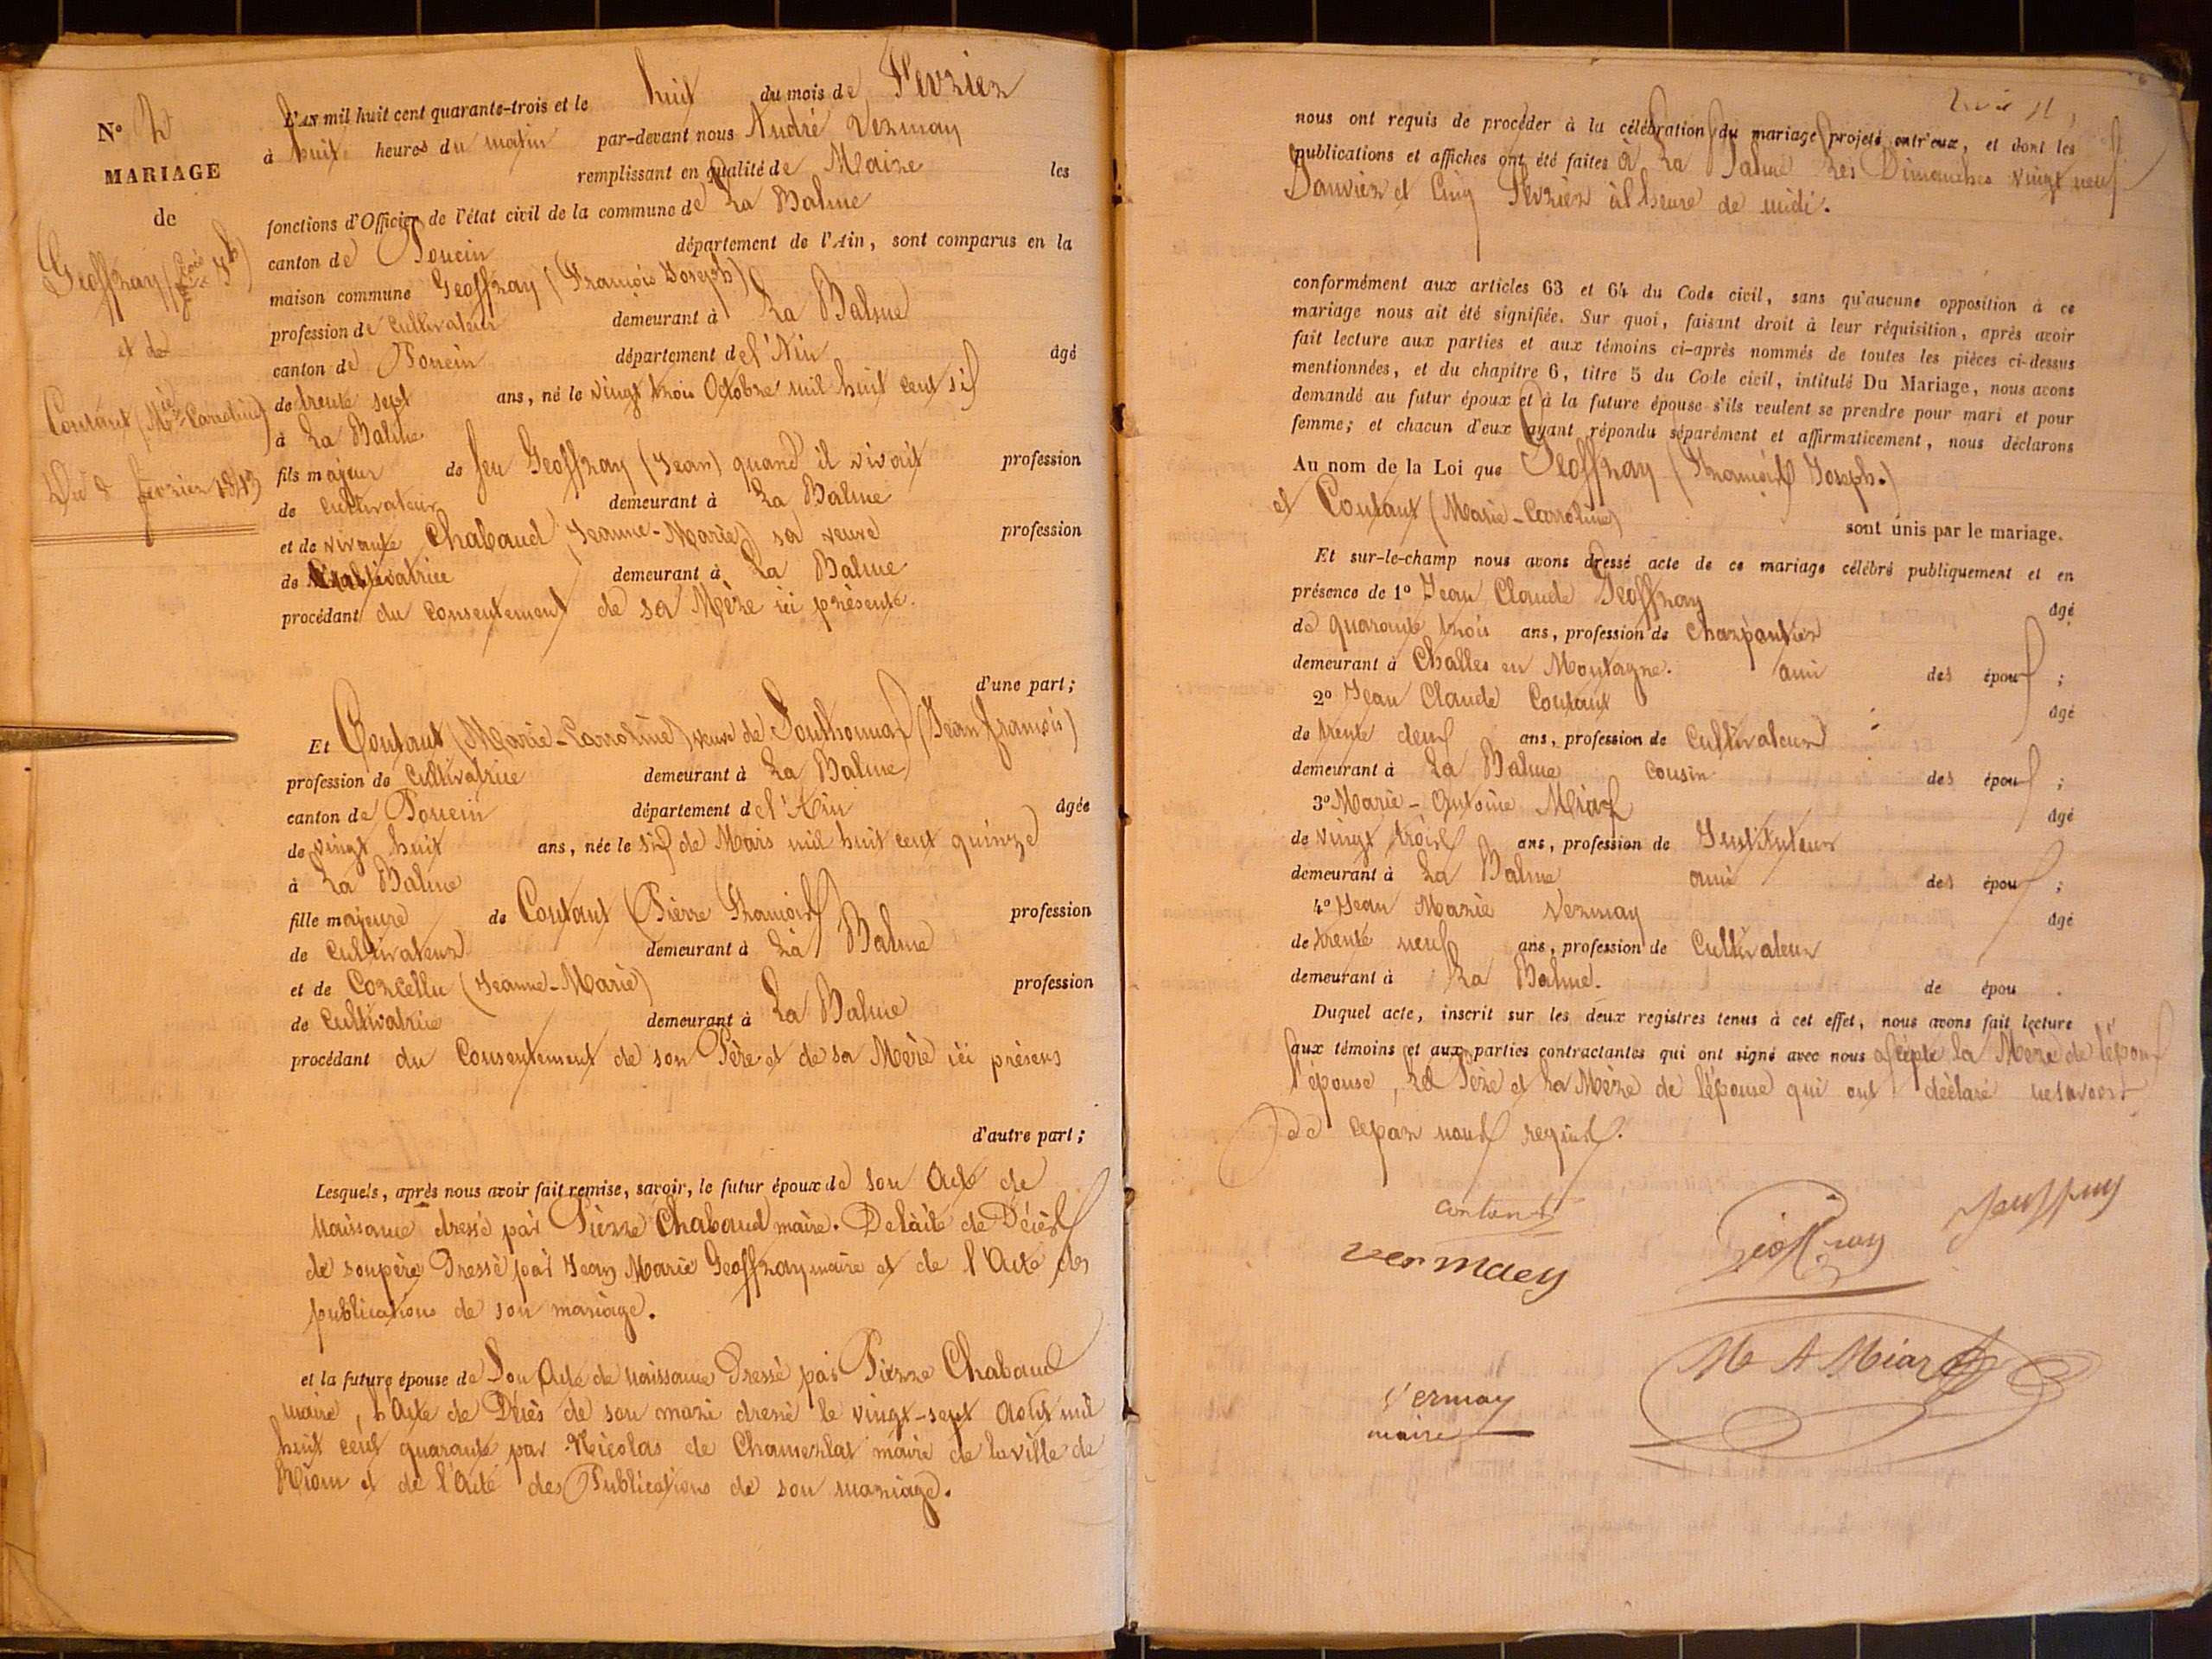 N° 2
MARIAGE
de
Geoffray (
et de
Coutaut (Mie-Carroline)
Du 8 février 1843
L'AN mil huit cent quarante-trois et le huit du mois de Février
à huit heures du matin par-devant nous André Vermay
remplissant en qualité de Maire les
fonctions d'Officier de l'état civil de la commune de La Balme
canton de Poncin département de l'Ain, sont comparus en la
maison commune Geoffray (François Joseph)
profession de Cultivateur demeurant à La Balme
canton de Poncin département de l'Ain âgé
de trente sept ans, né le vingt trois Octobre mil huit cent six
à La Balme
fils majeur de feu Geoffray (Jean) quand il vivait profession
de Cultivateur demeurant à La Balme
et de vivante Chabaud (Jeanne-Marie) sa veuve profession
de Cultivatrice demeurant à La Balme
procédant du consentement de sa Mère ici présente.
d'une part;
Et Coutaut (Marie-Carroline) veuve de (Jean françois)
profession de Cultivatrice demeurant à La Balme
canton de Poncin département de l'Ain âgée
de vingt huit ans, née le six de Mars mil huit cent quinze
à La Balme
fille majeure de Coutaut (Pierre François) profession
de Cultivateur demeurant à La Balme
et de (Jeanne-Marie) profession
de Cultivatrice demeurant à La Balme
procédant du Consentement de son Père et de sa Mère ici présens
d'autre part;
Lesquels, après nous avoir fait remise, savoir, le futur époux de son Acte de
Naissance dressé par Pierre Chabaud maire. De l'acte de Décès
de son père Dressé par Jean Marie Geoffray maire et de l'Acte des
publications de son mariage.
et la future épouse de Son Acte de naissance Dressé par Pierre Chabaud
maire, l'Acte de Décès de son mari dressé le vingt-sept Août mil
huit cent quarante par Nicolas de maire de la ville de
Riom et de l'Acte des Publications de son mariage.
nous ont requis de procéder à la célébration du mariage projeté entr'eux, et dont les
publications et affiches ont été faites à La Balme Les Dimanches vingt neuf
Janvier et Cinq Février à l'heure de midi.
conformément aux articles 63 et 64 du Code civil, sans qu'aucune opposition à ce
mariage nous ait été signifiée. Sur quoi, faisant droit à leur réquisition, après avoir
fait lecture aux parties et aux témoins ci-après nommés de toutes les pièces ci-dessus
mentionnées, et du chapitre 6, titre 5 du Code civil, intitulé Du Mariage, nous avons
demandé au futur époux et à la future épouse s'ils veulent se prendre pour mari et pour
femme; et chacun d'eux ayant répondu séparément et affirmativement, nous déclarons
Au nom de la Loi que Geoffray (François Joseph.)
et Coutaut (Marie-Carroline)
sont unis par le mariage.
Et sur-le-champ nous avons dressé acte de ce mariage célébré publiquement et en
présence de 1° Jean Claude Geoffray âgé
de quarante trois ans, profession de Charpantier
demeurant à Challes en Montagne. ami des époux ;
2° Jean Claude Coutaut âgé
de trente deux ans, profession de Cultivateur
demeurant à La Balme Cousin des époux ;
3° Marie-Antoine Miard âgé
de vingt trois ans, profession de Instituteur
demeurant à La Balme ami des époux ;
4° Jean Marie Vermay âgé
de trente neuf ans, profession de Cultivateur
demeurant à La Balme. de épou .
Duquel acte, inscrit sur les deux registres tenus à cet effet, nous avons fait lecture
aux témoins et aux parties contractantes qui ont signé avec nous la Mère de l'époux
l'épouse, Le Père et La Mère de l'épouse qui ont déclaré ne savoir
de ce par nous requis.
contant
vermaey
Geoffray
Jeuffray
M A Miard
Vermay
maire